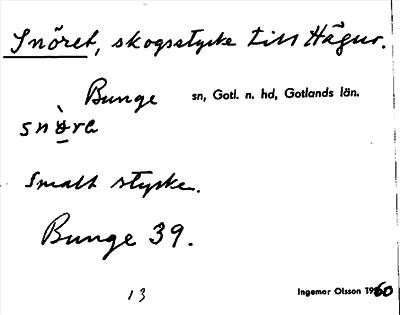 Snöret, skogsstycke till Hägur.
Bunge sn, Gotl. n. hd, Gotlands län.
Smalt stycke.
Bunge 39.
13
Ingemar Olsson 1960